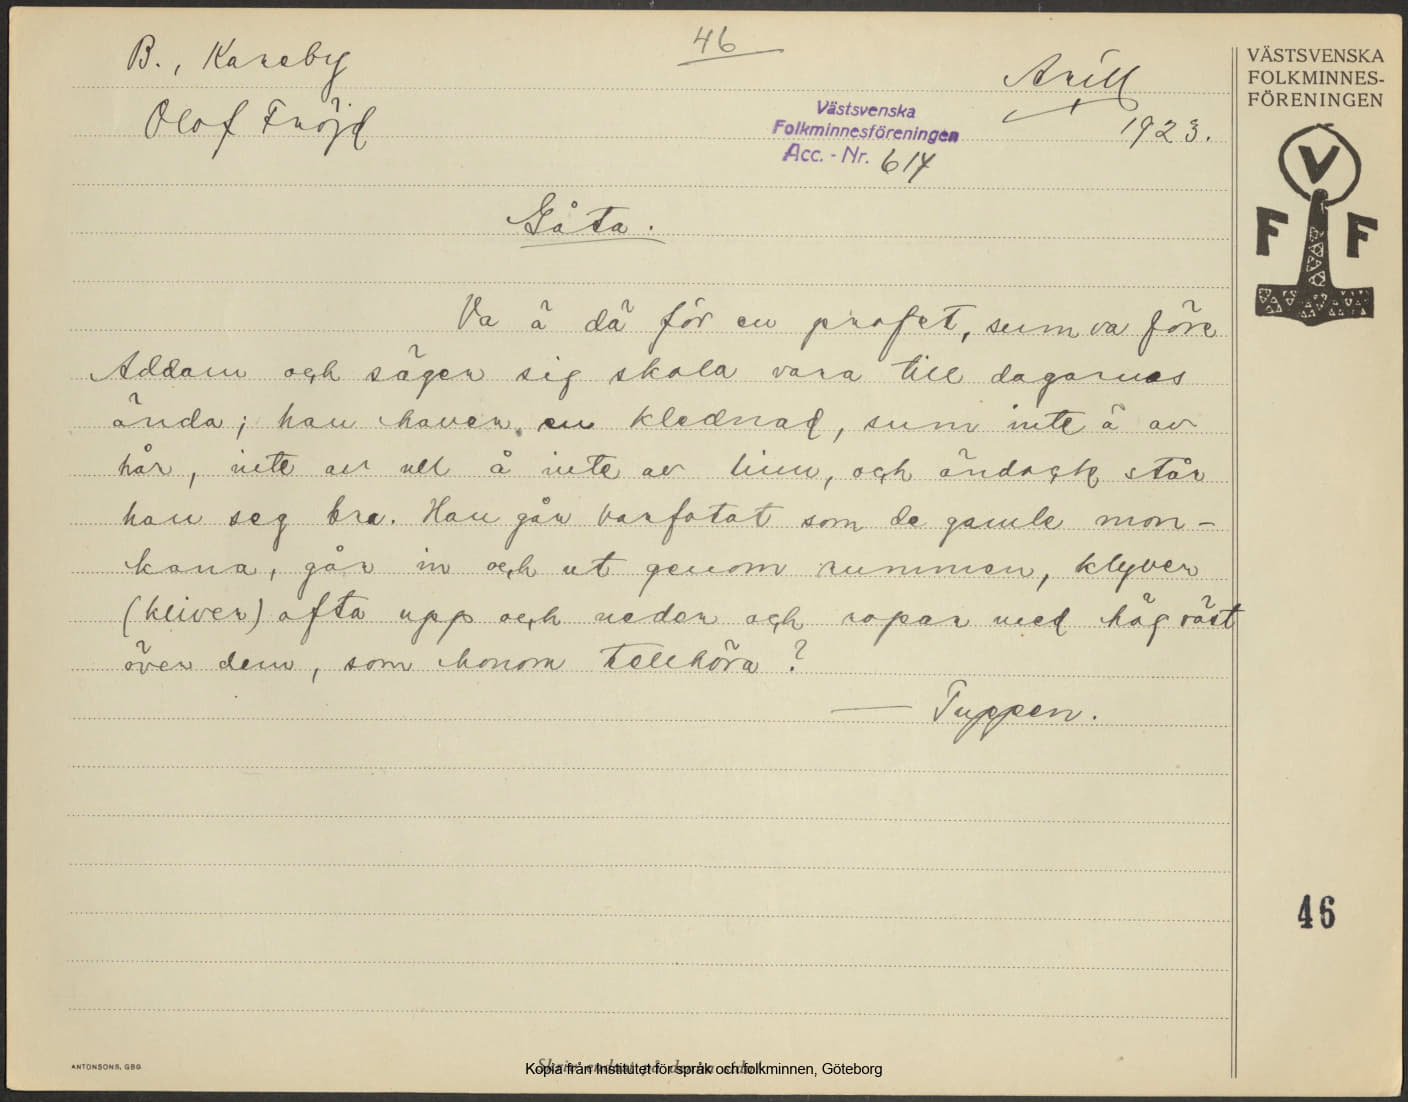 46
B., Kareby
Arill
Olof Fröjd
1923.
Västsvenska
Folkminnesföreningen
Acc. - Nr. 614
VÄSTSVENSKA
FOLKMINNES-
FÖRENINGEN
V
F F
Gåta.
Va ä dä för en profet, sum va före
Addam och säger sig skola vara till dagarnas
ända; han haver en klednad, sum inte ä av
hår, inte av ull å inte av linn, och ändock står
han seg bra. Han går barfotat som de gamle mon-
kana, går in och ut genom rummen, klyver
(kliver) ofta upp och neder och ropar med hög röst
över dem, som honom tellhöra?
— Tuppen.
46
ANTONSONS, GBG
Kopia från Institutet för språk och folkminnen, Göteborg